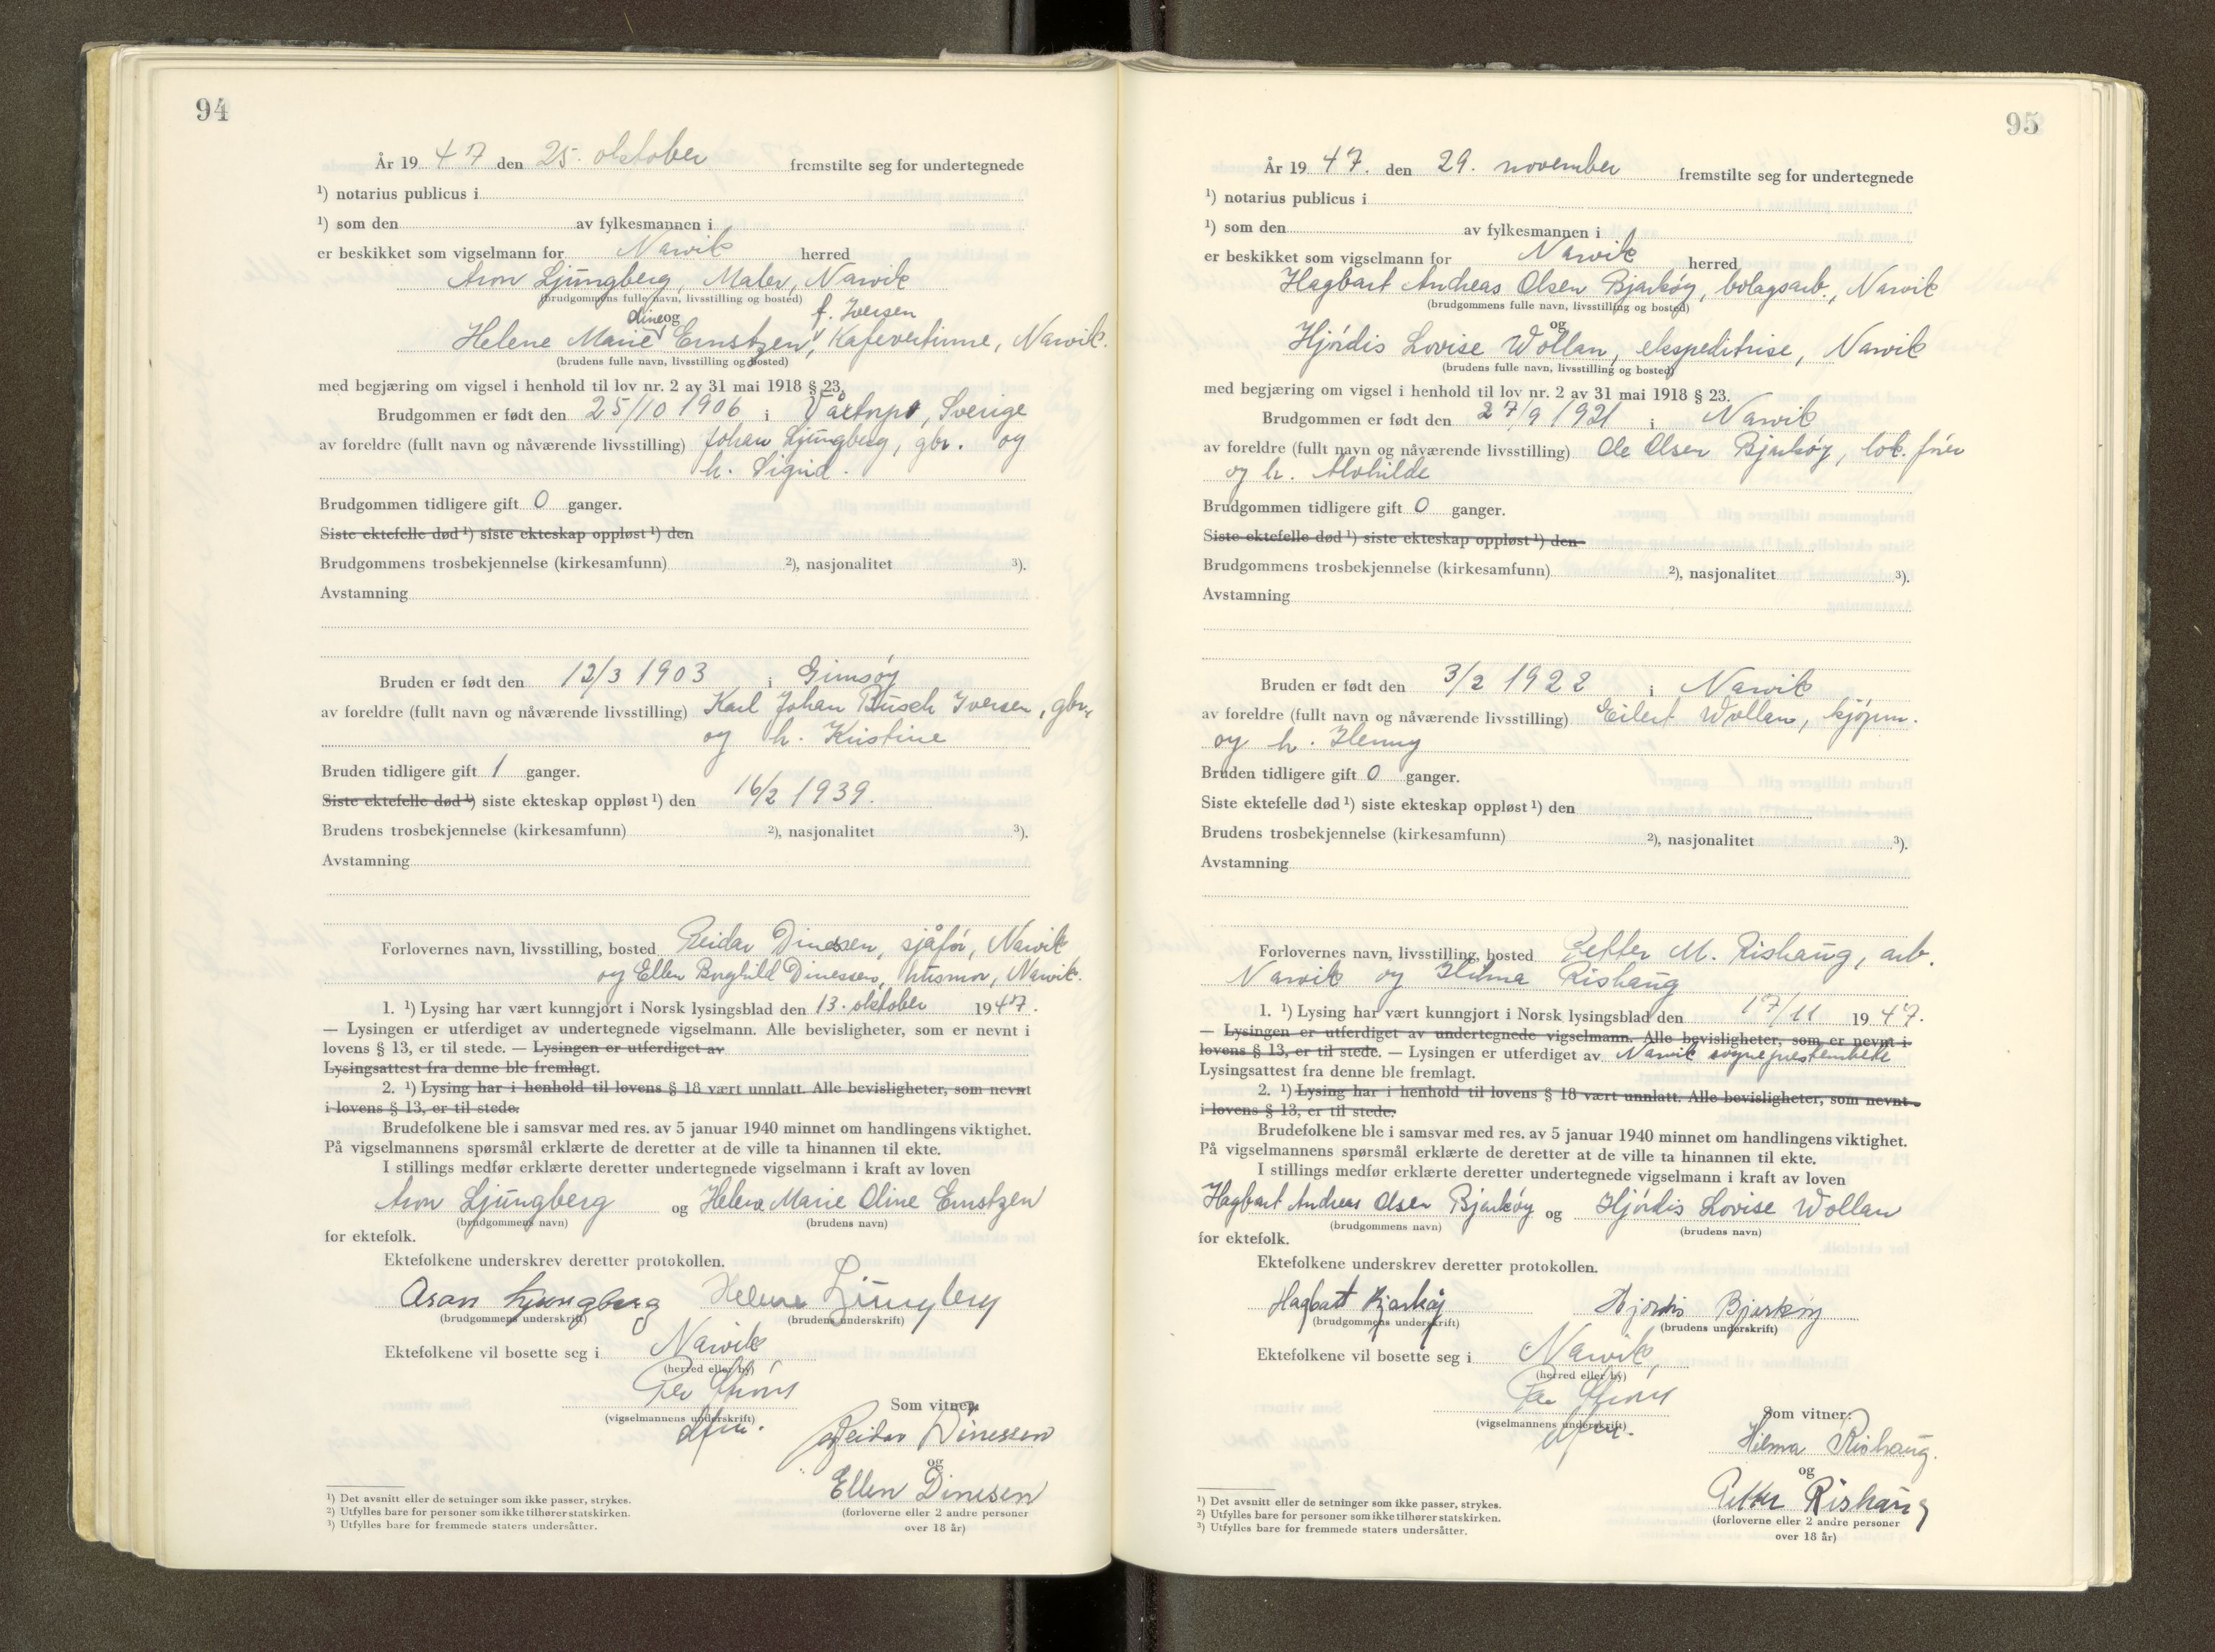 94
År 19 47 den 25. oktober fremstilte seg for undertegnede
¹) notarius publicus i
¹) som den av fylkesmannen i
er beskikket som vigselmann for Narvik herred
Aron Ljungberg, Maler, Narvik
(brudgommens fulle navn, livsstilling og bosted)
Oline og f. Iversen
Helene Marie Ernstzen, Kafevertinne, Narvik.
(brudens fulle navn, livsstilling og bosted)
med begjæring om vigsel i henhold til lov nr. 2 av 31 mai 1918 § 23.
Brudgommen er født den 25/10 1906 i Våxtorp, Sverige
av foreldre (fullt navn og nåværende livsstilling) Johan Ljungberg, gbr. og
h. Sigrid.
Brudgommen tidligere gift 0 ganger.
Siste ektefelle død ¹) siste ekteskap oppløst ¹) den
Brudgommens trosbekjennelse (kirkesamfunn) ²), nasjonalitet ³).
Avstamning
Bruden er født den 12/3 1903 i Gimsøy
av foreldre (fullt navn og nåværende livsstilling) Karl Johan Busch Iversen, gbr.
og h. Kristine
Bruden tidligere gift 1 ganger.
Siste ektefelle død ¹) siste ekteskap oppløst ¹) den 16/2 1939.
Brudens trosbekjennelse (kirkesamfunn) ²), nasjonalitet ³).
Avstamning
Forlovernes navn, livsstilling, bosted Reidar Dinessen, sjåfør, Narvik
og Ellen Borghild Dinessen, husmor, Narvik.
1. ¹) Lysing har vært kunngjort i Norsk lysingsblad den 13. oktober 1947.
— Lysingen er utferdiget av undertegnede vigselmann. Alle bevisligheter, som er nevnt i
lovens § 13, er til stede. — Lysingen er utferdiget av
Lysingsattest fra denne ble fremlagt.
2. ¹) Lysing har i henhold til lovens § 18 vært unnlatt. Alle bevisligheter, som nevnt
i lovens § 13, er til stede.
Brudefolkene ble i samsvar med res. av 5 januar 1940 minnet om handlingens viktighet.
På vigselmannens spørsmål erklærte de deretter at de ville ta hinannen til ekte.
I stillings medfør erklærte deretter undertegnede vigselmann i kraft av loven
Aron Ljungberg og Helene Marie Oline Ernstzen
(brudgommens navn) (brudens navn)
for ektefolk.
Ektefolkene underskrev deretter protokollen.
Aron Ljungberg Helene Ljungberg
(brudgommens underskrift) (brudens underskrift)
Ektefolkene vil bosette seg i Narvik
(herred eller by)
Per
(vigselmannens underskrift)
dfm.
Som vitner:
Reidar Dinessen
og
Ellen Dinesen
(forloverne eller 2 andre personer
over 18 år)
¹) Det avsnitt eller de setninger som ikke passer, strykes.
²) Utfylles bare for personer som ikke tilhører statskirken.
³) Utfylles bare for fremmede staters undersåtter.
95
År 19 47. den 29. november fremstilte seg for undertegnede
¹) notarius publicus i
¹) som den av fylkesmannen i
er beskikket som vigselmann for Narvik herred
Hagbart Andreas Olsen Bjarkøy, bolagsarb., Narvik
(brudgommens fulle navn, livsstilling og bosted)
og
Hjørdis Lovise Wollan, ekspeditrise, Narvik
(brudens fulle navn, livsstilling og bosted)
med begjæring om vigsel i henhold til lov nr. 2 av 31 mai 1918 § 23.
Brudgommen er født den 27/9 1921 i Narvik
av foreldre (fullt navn og nåværende livsstilling) Ole Olsen Bjarkøy, lok. fører
og h. Alvhilde
Brudgommen tidligere gift 0 ganger.
Siste ektefelle død ¹) siste ekteskap oppløst ¹) den
Brudgommens trosbekjennelse (kirkesamfunn) ²), nasjonalitet ³).
Avstamning
Bruden er født den 3/2 1922 i Narvik
av foreldre (fullt navn og nåværende livsstilling) Eilert Wollan, kjøpm.
og h. Henny
Bruden tidligere gift 0 ganger.
Siste ektefelle død ¹) siste ekteskap oppløst ¹) den
Brudens trosbekjennelse (kirkesamfunn) ²), nasjonalitet ³).
Avstamning
Forlovernes navn, livsstilling, bosted Petter M. Rishaug, arb.
Narvik og Hilma Rishaug
1. ¹) Lysing har vært kunngjort i Norsk lysingsblad den 17/11 1947.
— Lysingen er utferdiget av undertegnede vigselmann. Alle bevisligheter, som er nevnt i
lovens § 13, er til stede. — Lysingen er utferdiget av Narvik sogneprestembete
Lysingsattest fra denne ble fremlagt.
2. ¹) Lysing har i henhold til lovens § 18 vært unnlatt. Alle bevisligheter, som nevnt
i lovens § 13, er til stede.
Brudefolkene ble i samsvar med res. av 5 januar 1940 minnet om handlingens viktighet.
På vigselmannens spørsmål erklærte de deretter at de ville ta hinannen til ekte.
I stillings medfør erklærte deretter undertegnede vigselmann i kraft av loven
Hagbart Andreas Olsen Bjarkøy og Hjørdis Lovise Wollan
(brudgommens navn) (brudens navn)
for ektefolk.
Ektefolkene underskrev deretter protokollen.
Hagbart Bjarkøy Hjørdis Bjarkøy
(brudgommens underskrift) (brudens underskrift)
Ektefolkene vil bosette seg i Narvik,
(herred eller by)
Per
(vigselmannens underskrift)
dfm.
Som vitner:
Hilma Rishaug.
og
Petter Rishaug
(forloverne eller 2 andre personer
over 18 år)
¹) Det avsnitt eller de setninger som ikke passer, strykes.
²) Utfylles bare for personer som ikke tilhører statskirken.
³) Utfylles bare for fremmede staters undersåtter.